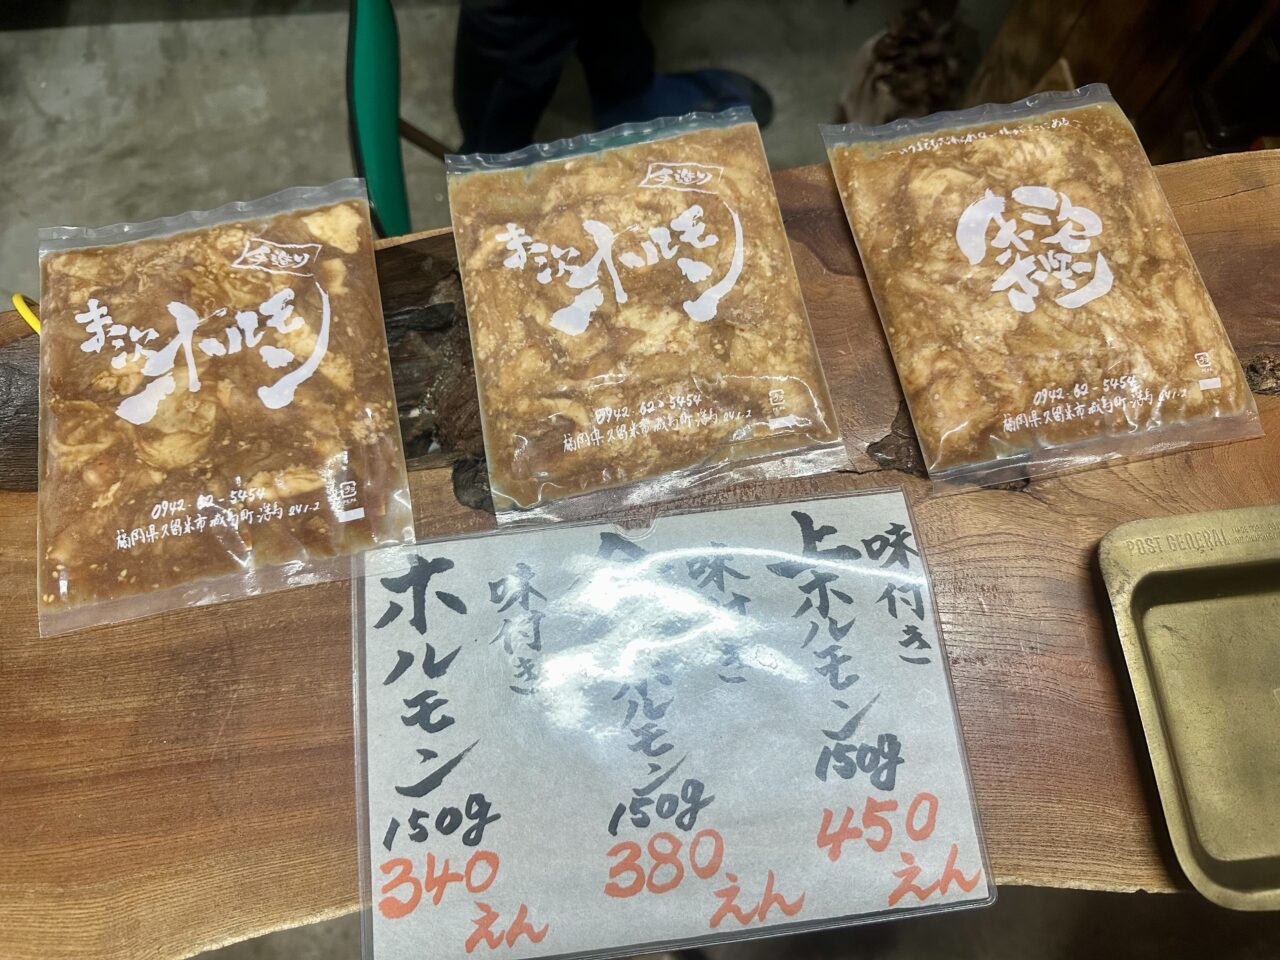 手造り
ホルモン
0942-62-5454
福岡県久留米市城島町浮島241-2
手造り
ホルモン
0942-62-5454
福岡県久留米市城島町浮島241-2
ホルモン
0942-62-5454
福岡県久留米市城島町浮島241-2
味付き
上ホルモン
150g
450
えん
味付き
ホルモン
150g
380
えん
味付き
ホルモン
150g
340
えん
POST GENERAL